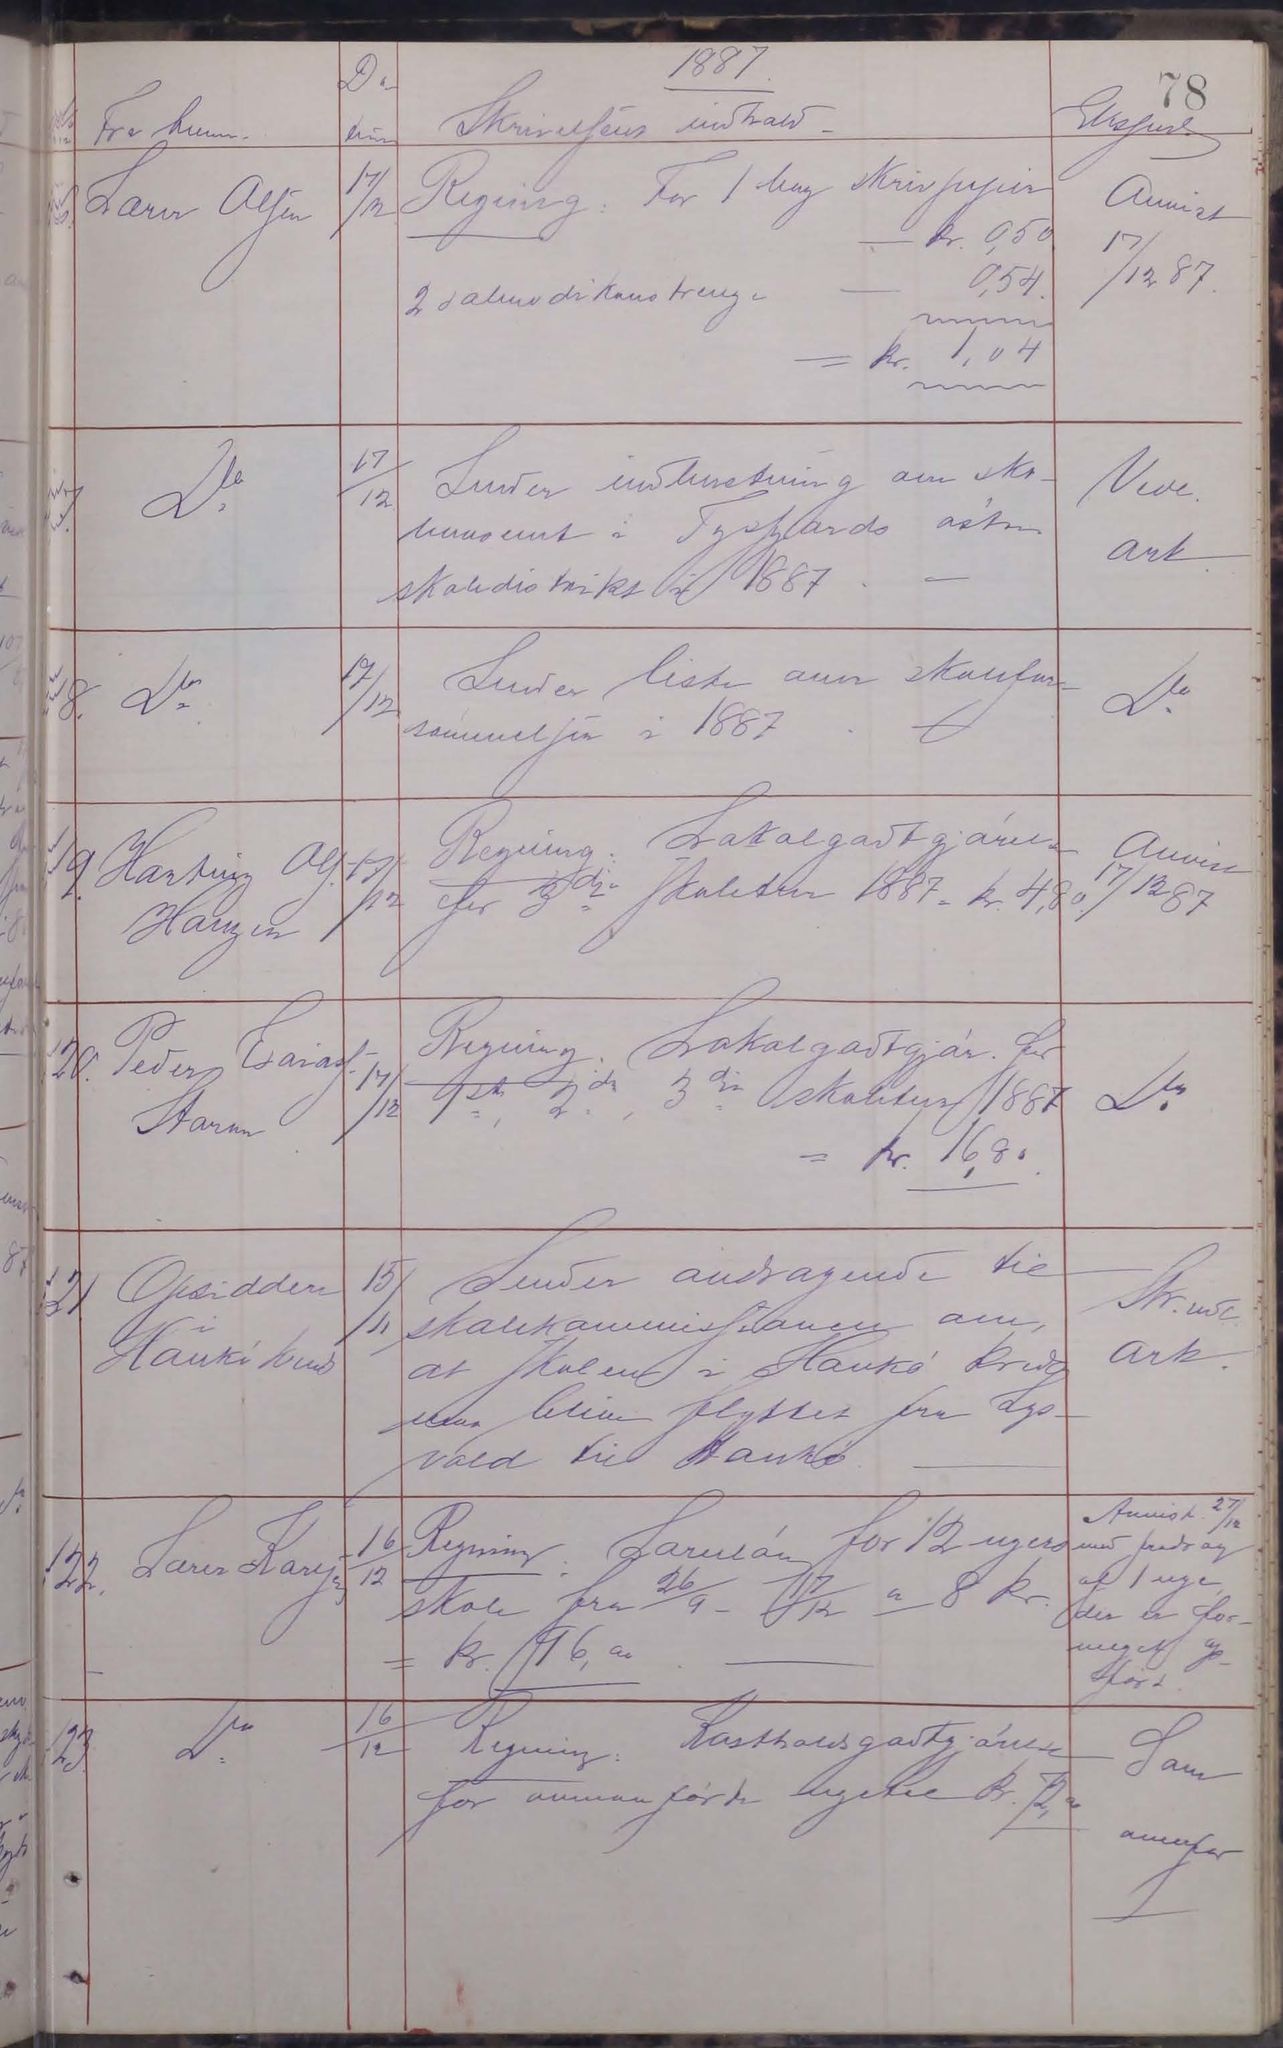 1887.
78
Fra hvem.
Da-
tum
Skrivelsens indhold-
Ekspd.
Lærer Olsen
17/12
Regning: For 1 bog skrivpapir
— kr. 0,50
2 salmodikonstrenge — 0,54.
= kr. 1,04
Anvist
17/12 87.
17.
Do
17/12
Sender indberetning om sko-
levæsenet i Tysfjords østre
skoledistrikt i 1887. —
Vedl.
ark.
18.
Do
17/12
Sender liste over skolefor-
sømmelser i 1887.
Do
19.
Hartvig Ols.
Haugen
17/12
Regning: Lokalgodtgjørelse
for 3die skoletur 1887 = kr. 4,80.
Anvist
17/12 87
120.
Peder Esaias-
Staran
17/12
Regning. Lokalgodtgjør. for
1ste, 2den, 3die skoletur 1887
= kr. 16,80.
Do
121
Opsiddere
i
Haukø kreds
15/11
Sender andragende til
skolekommissionen om,
at skolen i Haukø kreds
maa blive flyttet fra Lys-
vold til Haukø. —
Skr. vedl.
ark.
122.
Lærer Karlsen
16/12
Regning. Lærerløn for 12 ugers
skole fra 26/9 - 17/12 a 8 kr.
= kr. 96,00. —
Anvist 27/12
med fradrag
af 1 uge,
der er for-
meget op-
ført.
123.
Do
16/12
Regning: Kostholdsgodtgjørelse
for ovenanførte ugetal kr.
Som
ovenfor